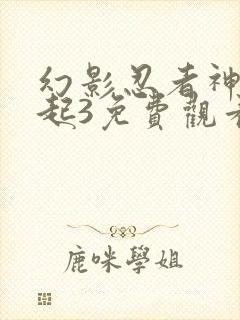 幻影忍者神
起3免費觀看
鹿咪學姐